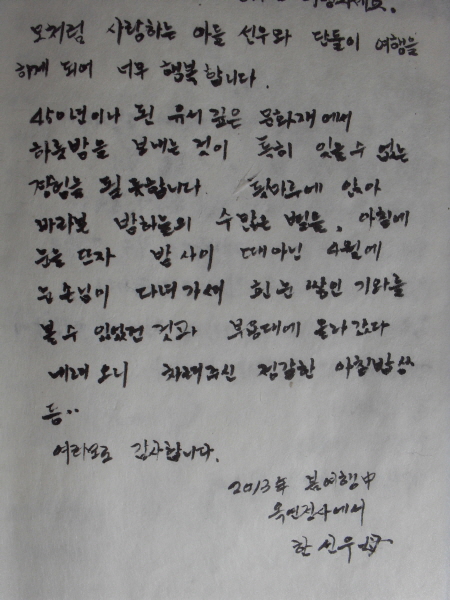 모처럼 사랑하는 아들 선우와 단둘이 여행을
하게 되어 너무 행복합니다.
450년이나 된 유서 깊은 문화재에서
하룻밤을 보내는 것이 특히 잊을 수 없는
경험을 될 듯합니다. 툇마루에 앉아
바라본 밤하늘의 수많은 별들, 아침에
눈을 뜨자 밤 사이 때아닌 4월에
눈손님이 다녀가셔 흰 눈 쌓인 기와를
볼 수 있었던 것과 부용대에 올라갔다
내려오니 차려주신 정갈한 아침밥상
등..
여러모로 감사합니다.
2013年 봄여행中
옥연정사에서
한선우 母